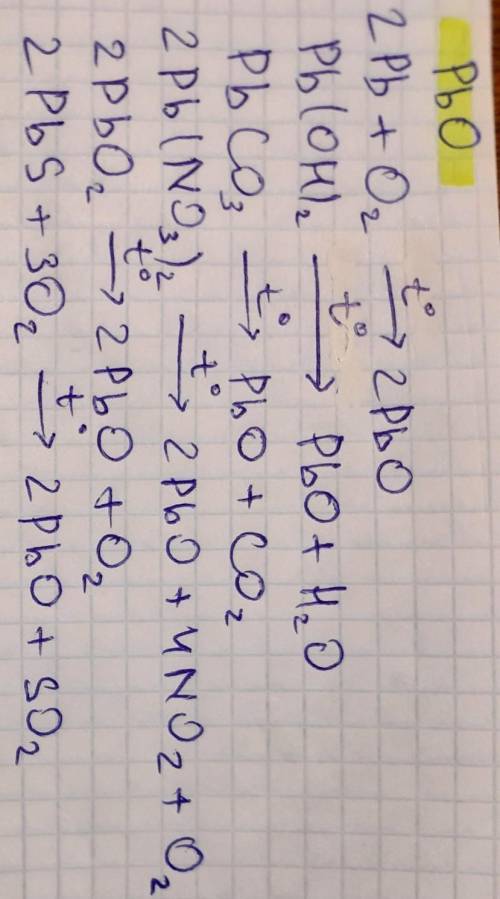 PbO
2Pb + O₂ →t° 2PbO
Pb(OH)₂ →t° PbO + H₂O
PbCO₃ →t° PbO + CO₂
2Pb(NO₃)₂ →t° 2PbO + 4NO₂ + O₂
2PbO₂ →t° 2PbO + O₂
2PbS + 3O₂ →t° 2PbO + SO₂